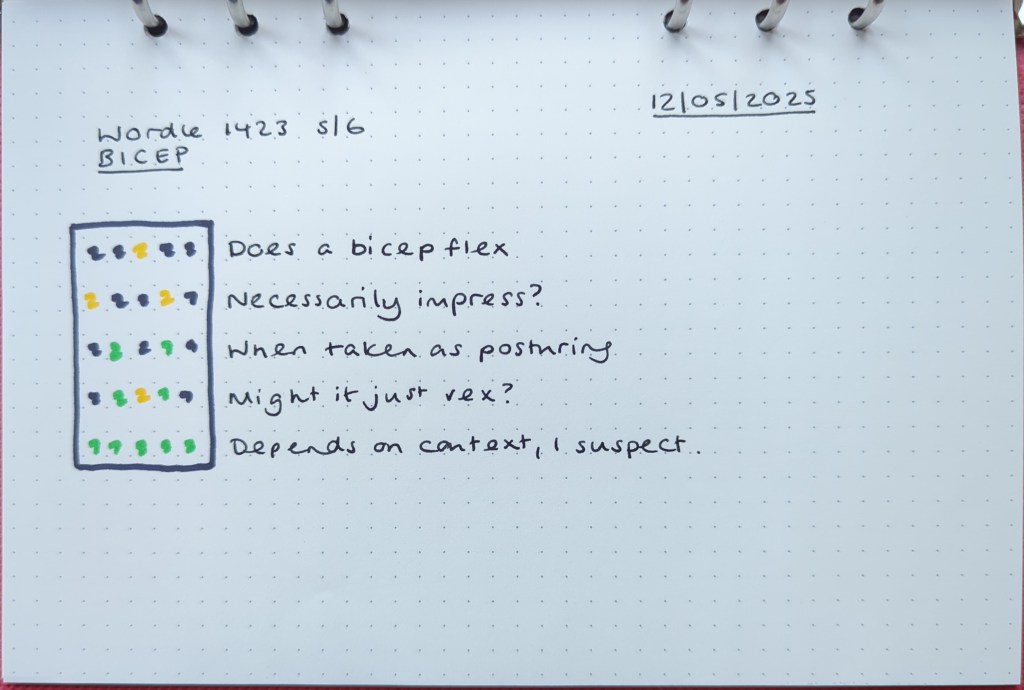 12/05/2025
Wordle 1423 5/6
BICEP
Does a bicep flex
Necessarily impress?
When taken as posturing
Might it just vex?
Depends on context, I suspect.